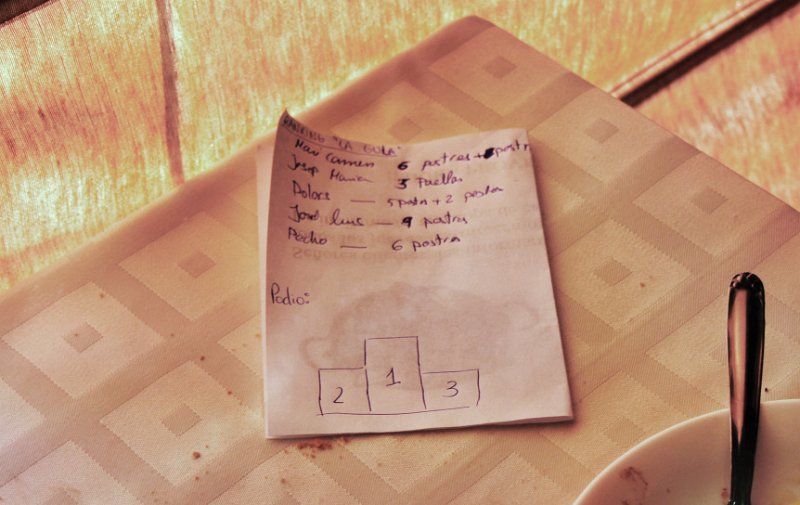 RANKING "LA GULA"
Mari Carmen 6 postres +
Josep Maria 3 Paellas
Dolors — 5 + 2 postres
José Luis — 9 postres
Pocho — 6 postres
Podio:
2 1 3